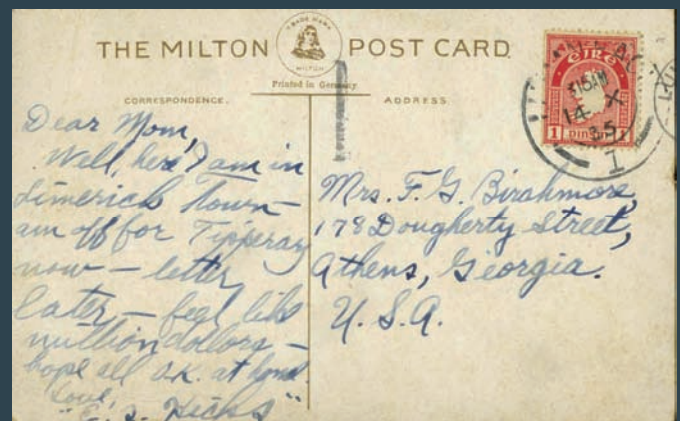 THE MILTON POST CARD.
TRADE MARK
MILTON
Printed in Germany
CORRESPONDENCE.
ADDRESS.
Dear Mom,
Well, here I am in
Limerick Town –
am off for Tipperary
now – letter
later – feel like
million dollars –
hope all O.K. at home.
Love,
Mrs. F. G. Birchmore,
178 Dougherty Street,
Athens, Georgia.
U.S.A.
éire
1 1
315AM
14 X
35
1